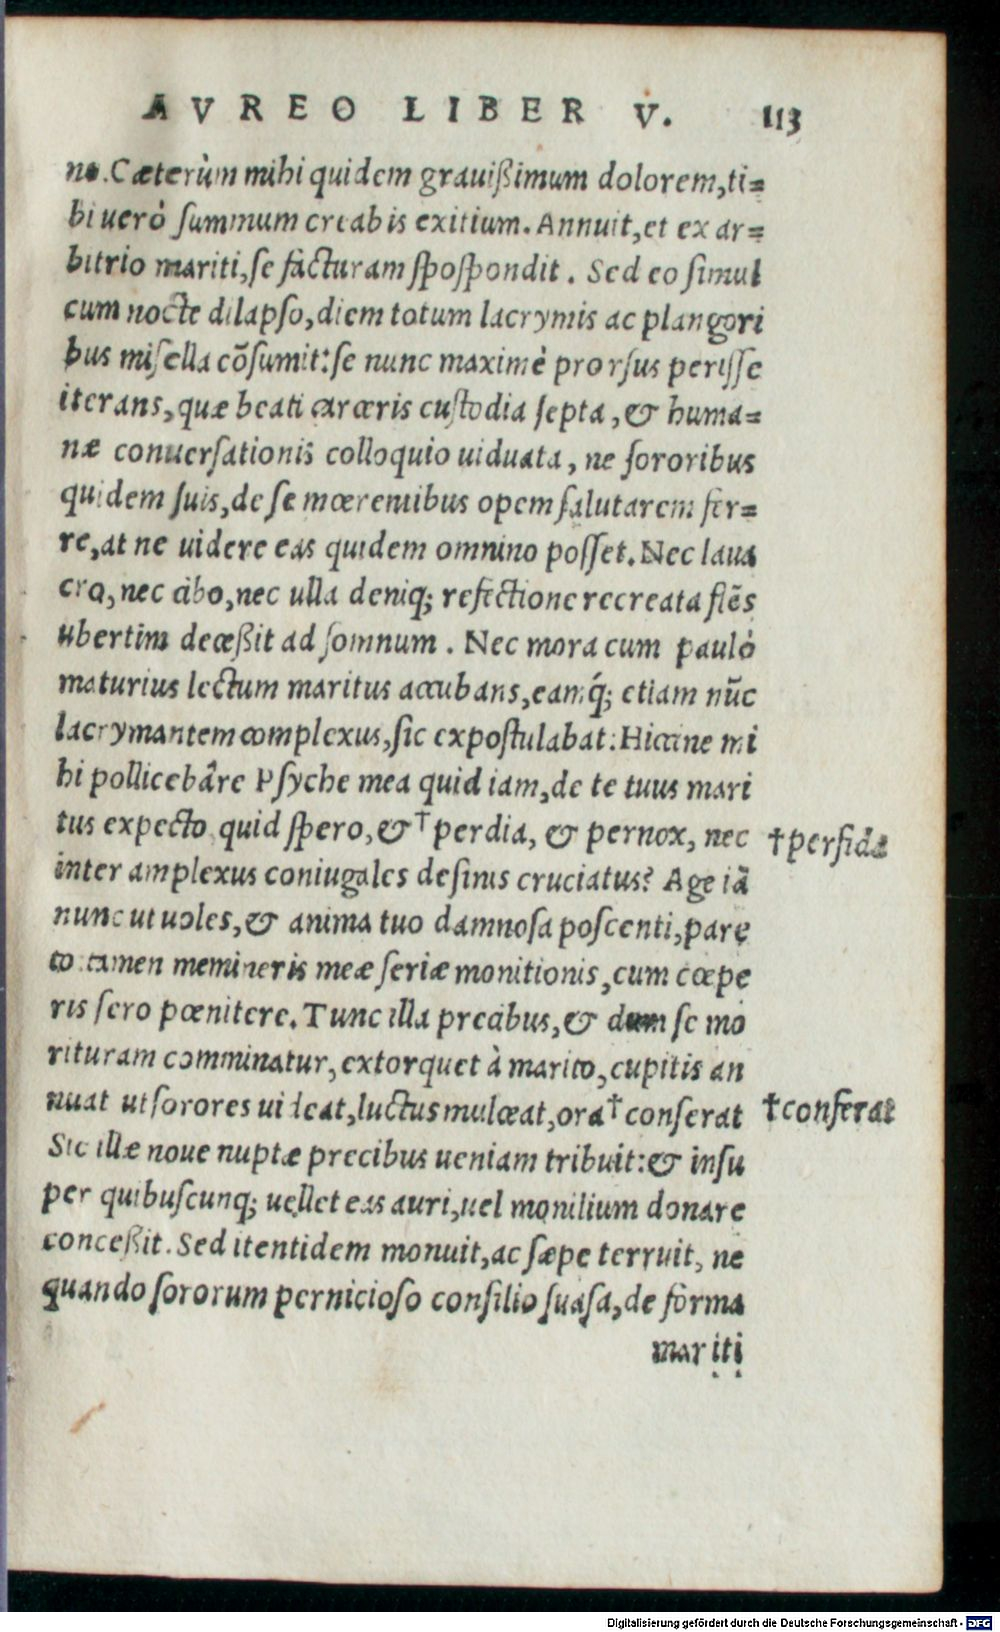 AVREO LIBER V. 113
no. Cæterùm mihi quidem grauißimum dolorem, ti=
bi uerò summum creabis exitium. Annuit, et ex ar=
bitrio mariti, se facturam spospondit. Sed eo simul
cum nocte dilapso, diem totum lacrymis ac plangori
bus misella cōsumit: se nunc maximè prorsus perisse
iterans, quæ beati carceris custodia septa, & huma=
næ conuersationis colloquio uiduata, ne sororibus
quidem suis, de se mœrentibus opem salutarem fer=
re, at ne uidere eas quidem omnino posset. Nec laua
cro, nec cibo, nec ulla deniq; refectione recreata flēs
ubertim deceßit ad somnum. Nec mora cum paulò
maturius lectum maritus accubans, eamq́; etiam nūc
lacrymantem complexus, sic expostulabat: Hiccine mi
hi pollicebâre Psyche mea quid iam, de te tuus mari
tus expecto quid spero, & † perdia, & pernox, nec
†perfida
inter amplexus coniugales desinis cruciatus? Age iā
nunc ut uoles, & anima tuo damnosa poscenti, pare
to tamen memineris meæ seriæ monitionis, cum cœpe
ris sero pœnitere. Tunc illa precibus, & dum se mo
rituram comminatur, extorquet à marito, cupitis an
nuat ut sorores uideat, luctus mulceat, ora † conserat
†conferat
Sic illæ noue nuptæ precibus ueniam tribuit: & insu
per quibuscunq; uellet eas auri, uel monilium donare
conceßit. Sed itentidem monuit, ac sæpe terruit, ne
quando sororum pernicioso consilio suasa, de forma
mariti
Digitalisierung gefördert durch die Deutsche Forschungsgemeinschaft - DFG